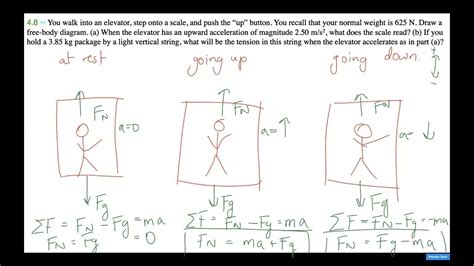 4.8 •• You walk into an elevator, step onto a scale, and push the “up” button. You recall that your normal weight is 625 N. Draw a
free-body diagram. (a) When the elevator has an upward acceleration of magnitude 2.50 m/s², what does the scale read? (b) If you
hold a 3.85 kg package by a light vertical string, what will be the tension in this string when the elevator accelerates as in part (a)?
at rest going up going down + -
F_N F_N F_N
a=0 a=↑ a= ↓
Fg Fg Fg
ΣF = F_N - Fg = ma ΣF = F_N - Fg = ma ΣF = F_N - Fg = -ma
F_N = Fg = 0 F_N = ma + Fg F_N = Fg - ma